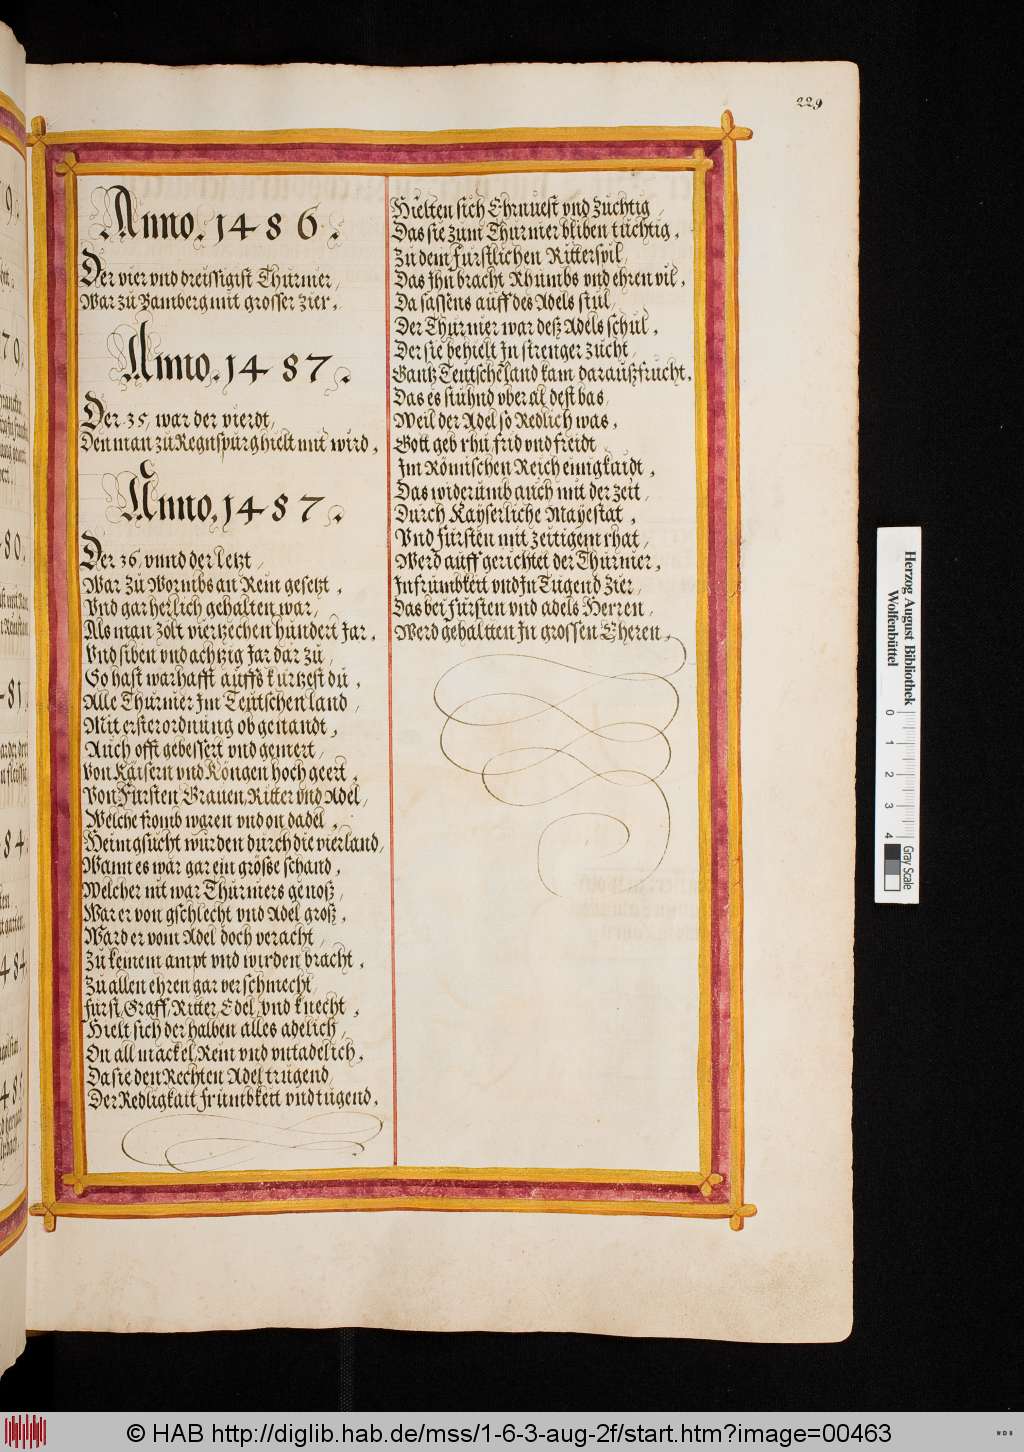 229
Anno. 1486.
Der vier vnd dreissigist Thurnier,
War zu Bamberg mit grosser zier.
Anno. 1487.
Der 35, war der vierdt,
Den man zu Regnspurg hielt mit wird.
Anno. 1487.
Der 36, vnnd der letzt,
War zu Wormbs an Rein gesetzt,
Vnd gar herlich gehalten war,
Als man zolt viertzechen hundert Jar,
Vnd siben vnd achtzig Jar dar zu,
So hast warhafft auffs kurtzest du,
Alle Thurnier Im Teutschen land,
Mit erster ordnung ob genandt,
Auch offt gebessert vnd gemert,
Von Kaisern vnd Köngen hoch geert,
Von Fursten Grauen, Ritter vnd Adel,
Welche fromb waren vnd on dadel,
Heimgsucht wurden durch die vierland,
Wann es war gar ein grosse schand,
Welcher nit war Thurniers genoß,
War er von gschlecht vnd Adel groß,
Ward er vom Adel doch veracht,
Zu keinem ampt vnd wirden bracht,
Zu allen ehren gar verschmecht,
furst, Graff, Ritter, Edel, vnd knecht,
Hielt sich der halben alles adelich,
On all mackel, Rein vnd vntadelich,
Da sie den Rechten Adel trugend,
Der Redligkait frumbkeit vnd tugend,
Hielten sich Ehruest vnd zuchtig,
Das sie zum Thurnier bliben tuchtig,
Zu dem furstlichen Ritterspil,
Das Ihn bracht Rhumbs vnd ehren vil,
Da sassens auff des Adels stul,
Der Thurnier war deß Adels schul,
Der sie behielt In strenger zucht,
Gantz Teutscheland kam darauß frucht,
Das es stuhnd vberal dest bas,
Weil der Adel so Redlich was,
Gott geb rhu frid vnd freidt
Im Römischen Reich einigkaidt,
Das widerumb auch mit der zeit,
Durch Kayserliche Mayestat,
Vnd fursten mit zeitigem rhat,
Werd auff gerichtet der Thurnier,
In frumbkeit vnd In Tugend zier,
Das bei fursten vnd adels Herren,
Werd gehaltten In grossen Eheren,
Herzog August Bibliothek
Wolfenbüttel
0 1 2 3 4
Gray Scale
© HAB http://diglib.hab.de/mss/1-6-3-aug-2f/start.htm?image=00463